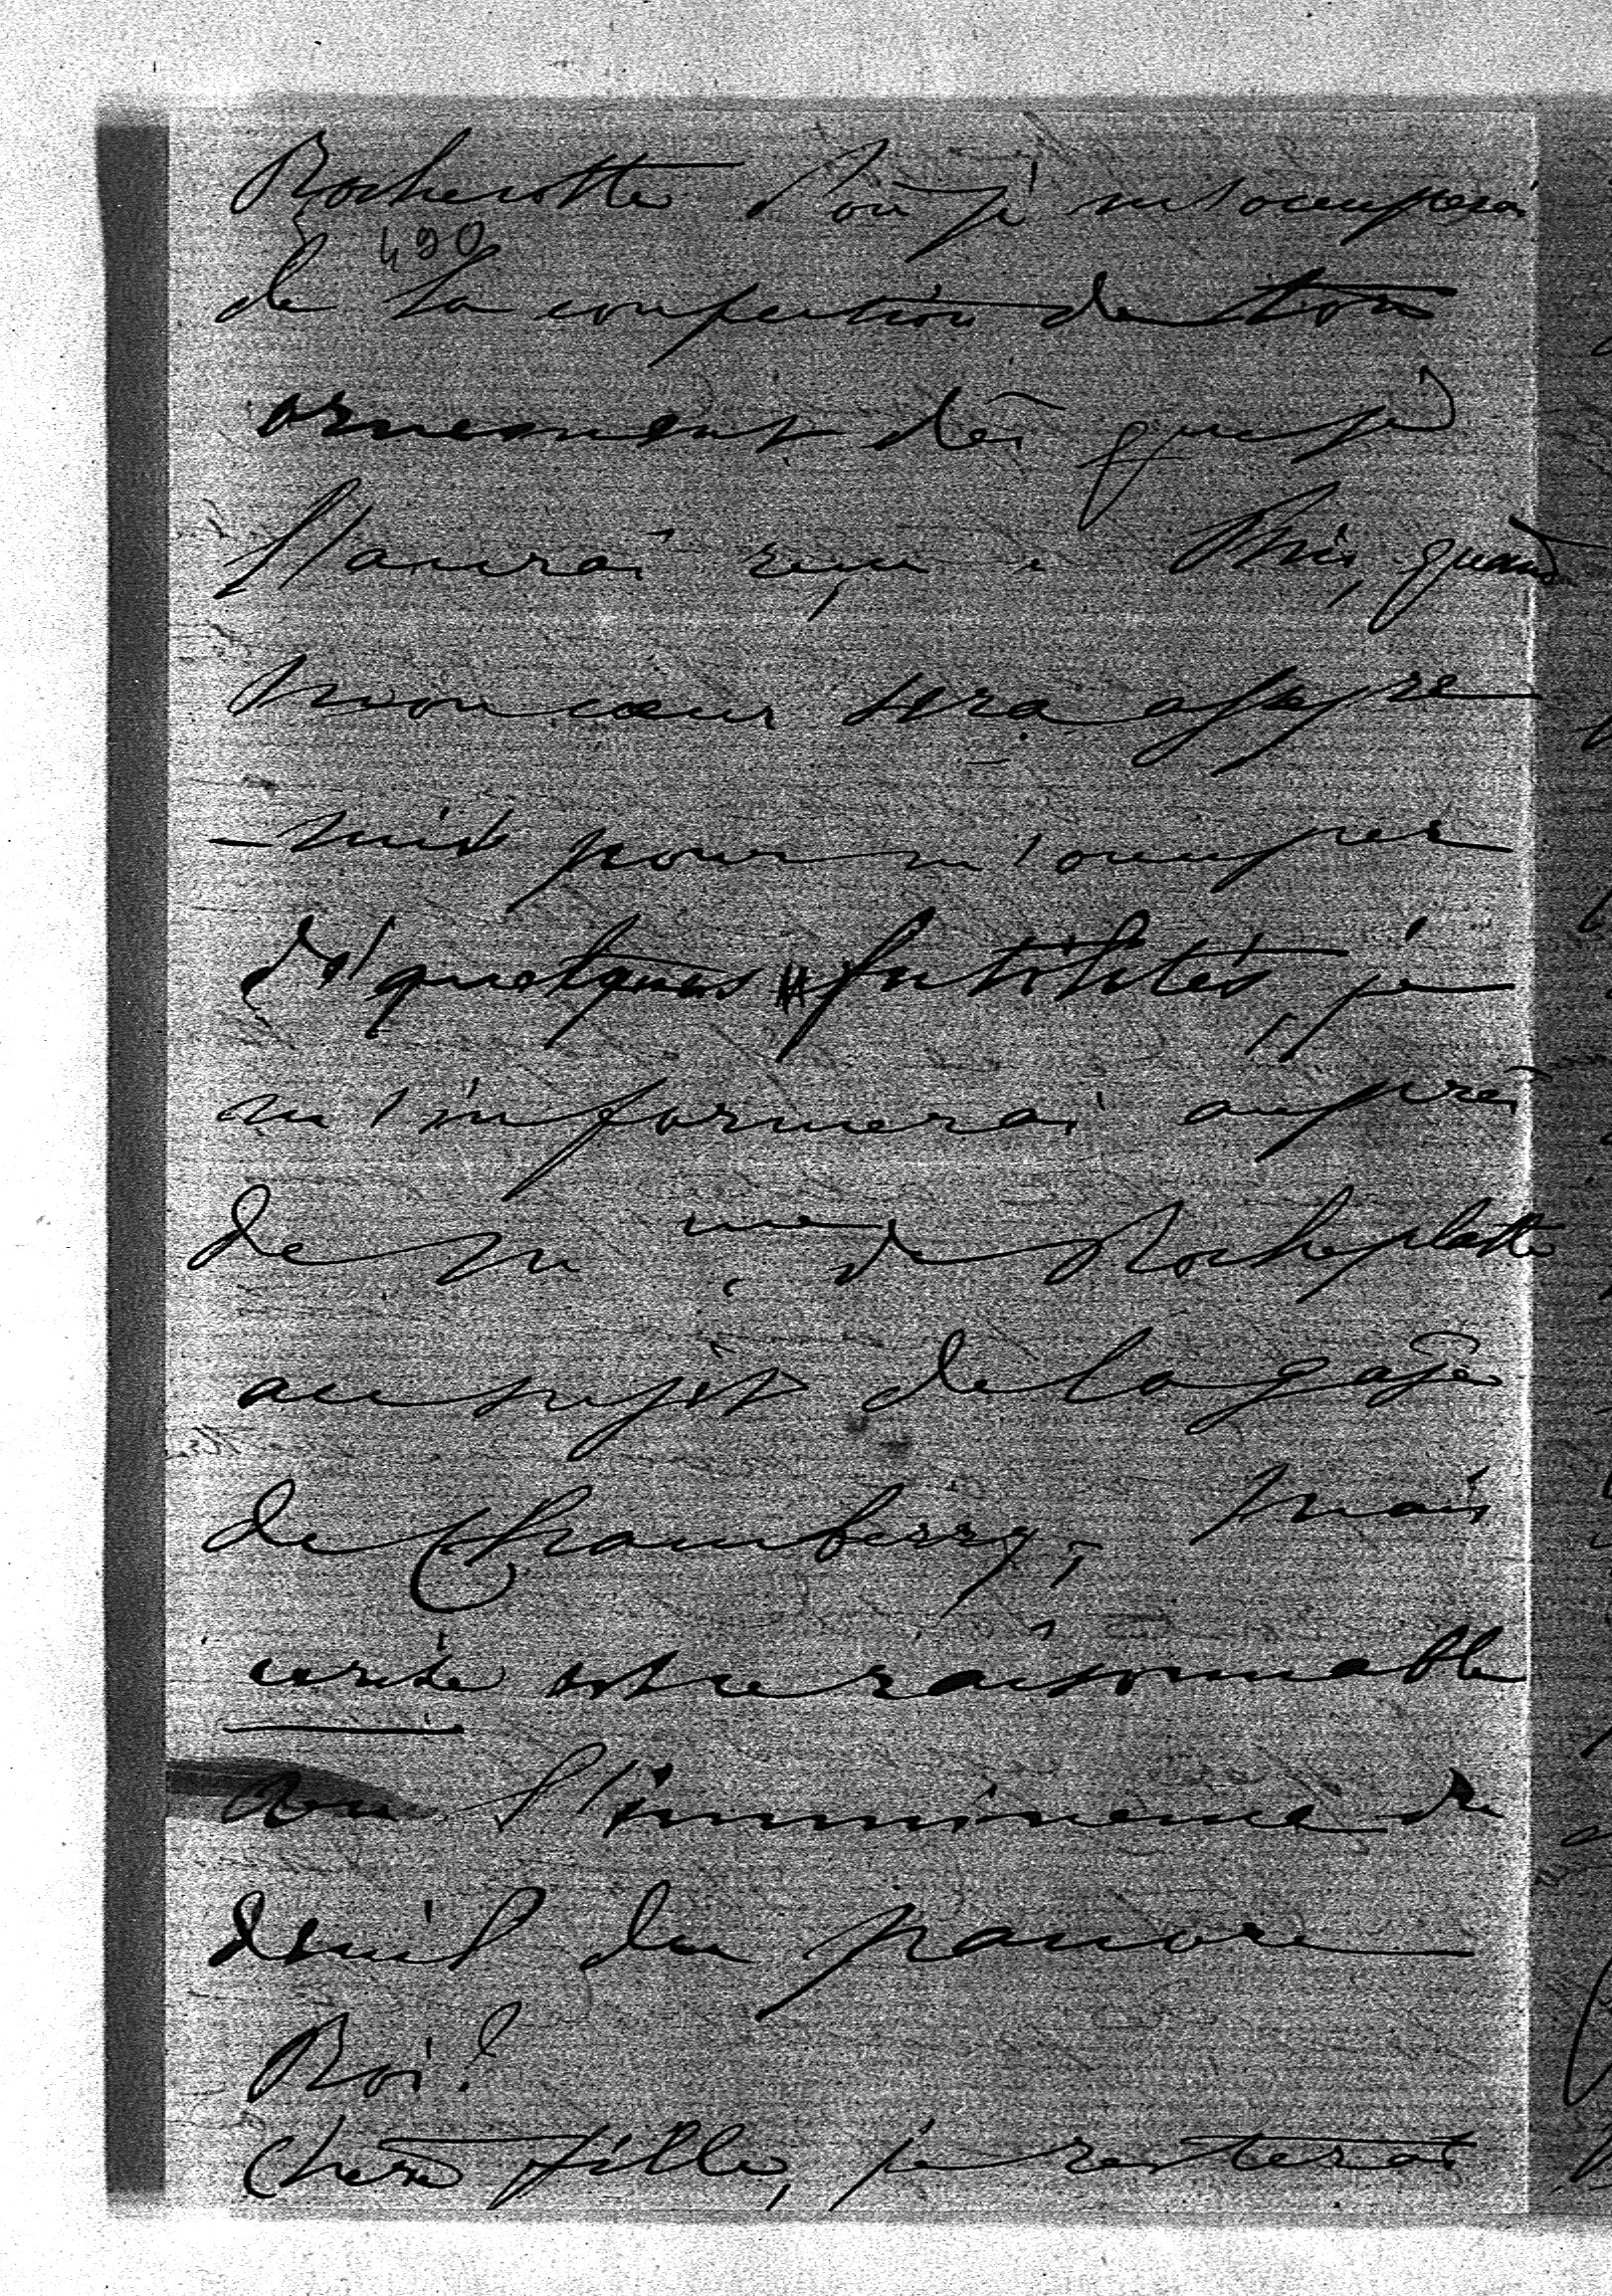 Rochecotte d'où je m'occuperai
490
de la confection de ton
ornement dès que je
l'aurai reçu. Puis, quand
mon cœur sera affer
-mit pour m'occuper
de quelques futilités, je
m'informerai auprès
de Mme de Rocheplatte
au sujet de la gaze
de Chambery, mais
serite raisonnable
vu l'imminence du
deuil du pauvre
Roi?
Chère fille, je resterai